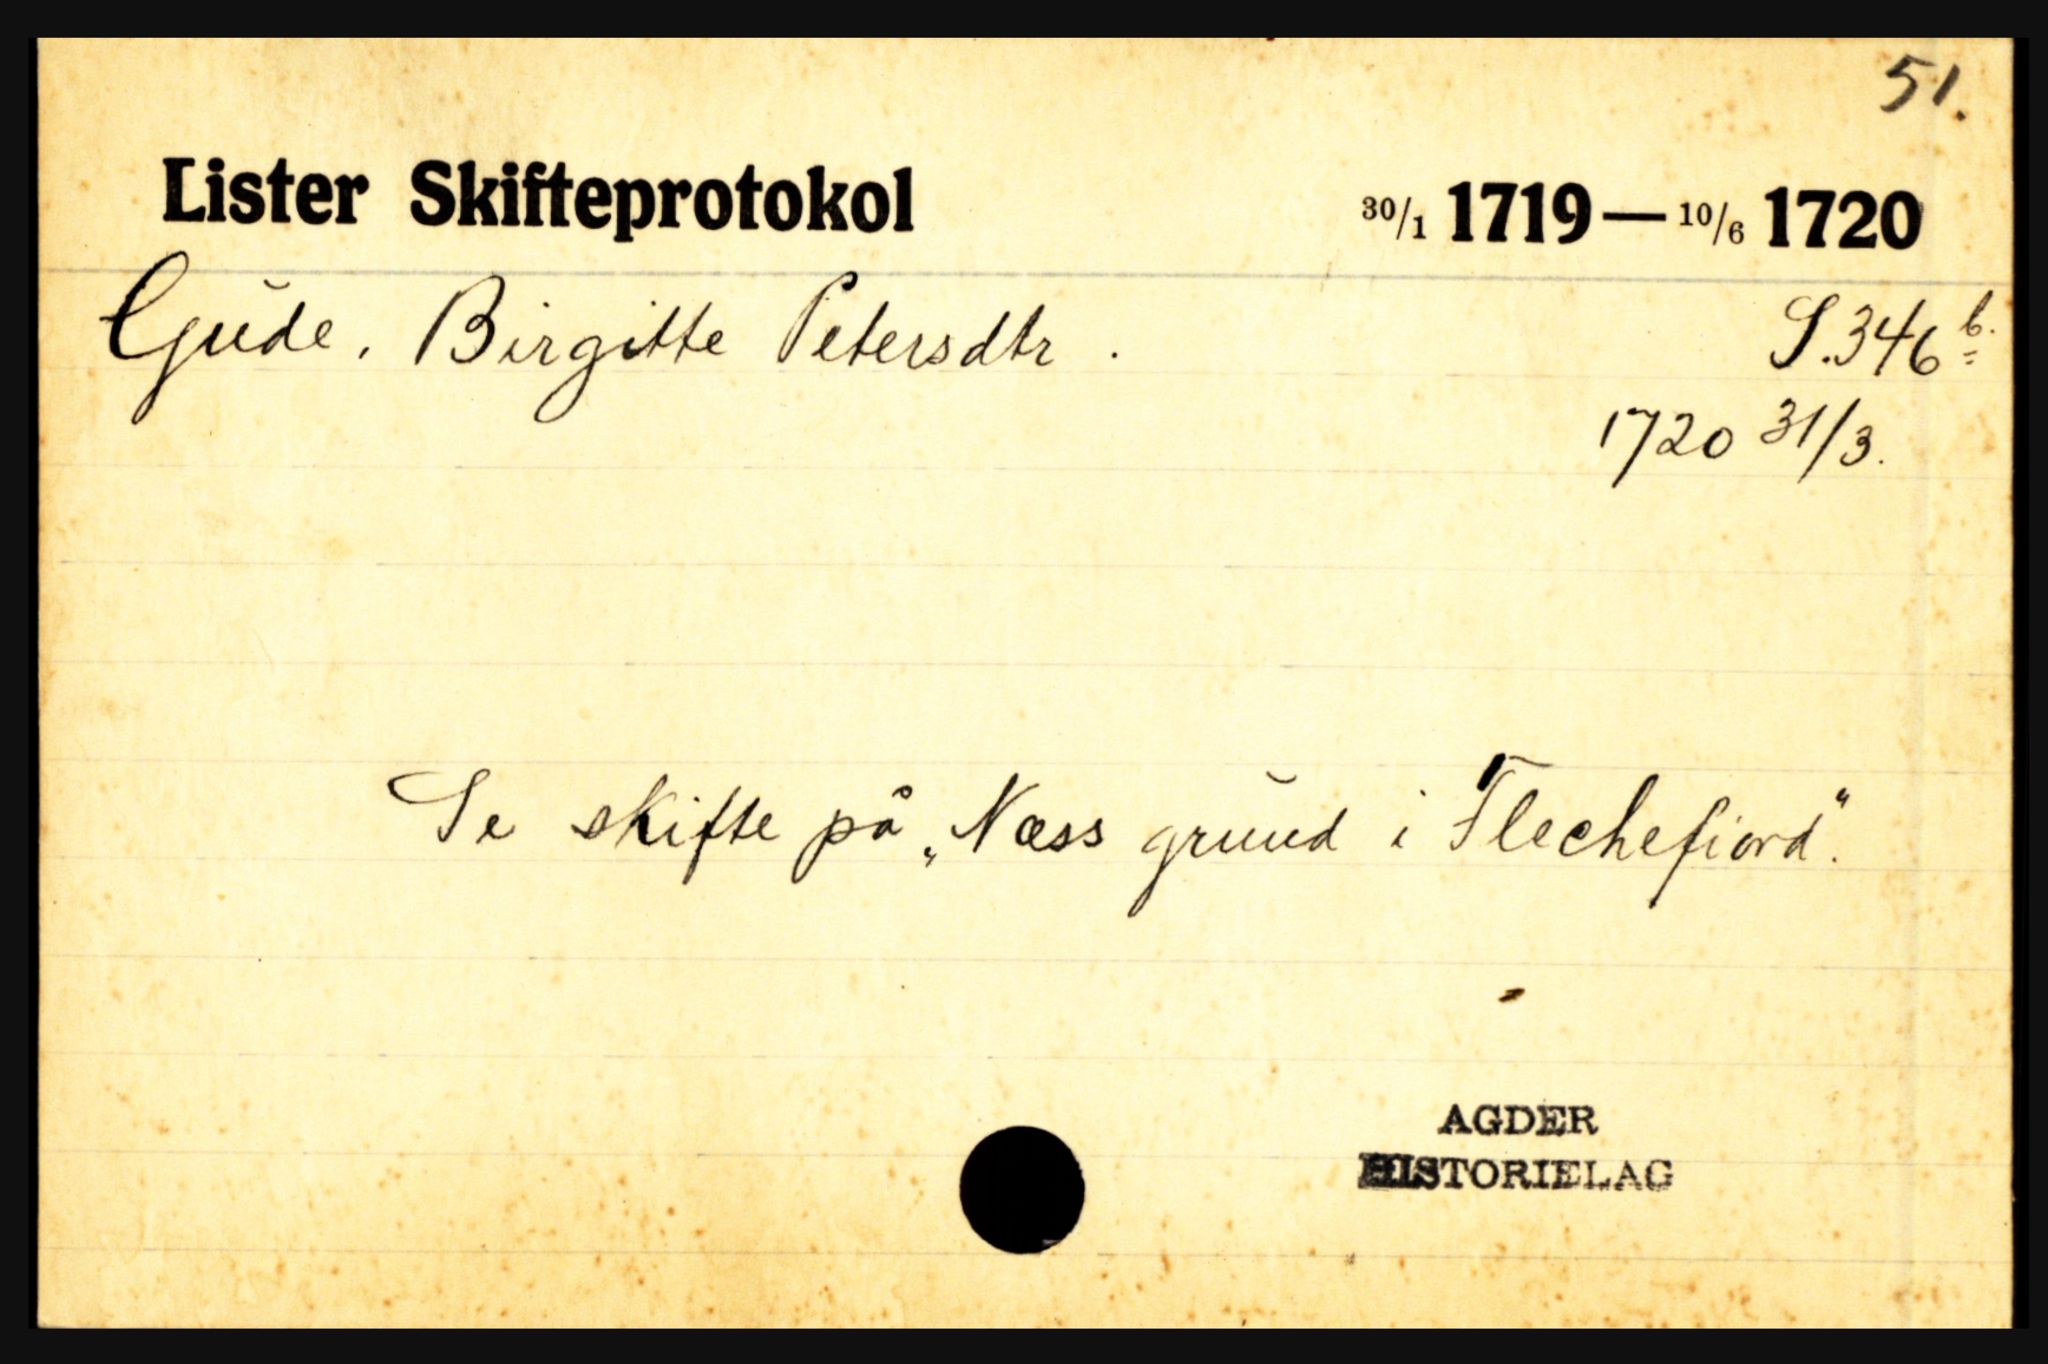 51.
Lister Skifteprotokol 30/1 1719 — 10/6 1720
Gude, Birgitte Petersdtr. S. 346 b.
1720 31/3.
Se skifte på „Næss grund i Flechefiord".
AGDER
HISTORIELAG